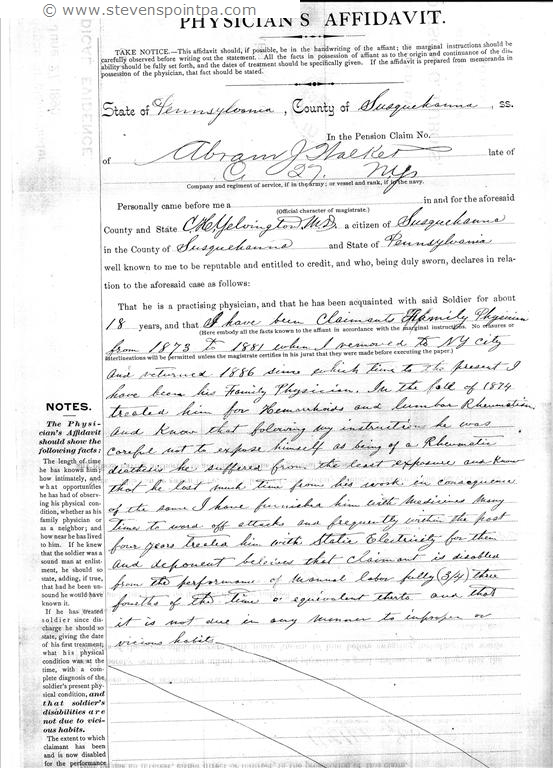 © www.stevenspointpa.com
PHYSICIAN'S AFFIDAVIT.
TAKE NOTICE.—This affidavit should, if possible, be in the handwriting of the affiant; the marginal instructions should be
carefully observed before writing out the statement. All the facts in possession of affiant as to the origin and continuance of the dis-
ability should be fully set forth, and the dates of treatment should be specifically given. If the affidavit is prepared from memoranda in
possession of the physician, that fact should be stated.
State of Pennsylvania, County of Susquehanna, ss.
In the Pension Claim No.
of Abram J Walker late of
C. 27. NYs
Company and regiment of service, if in the army; or vessel and rank, if in the navy.
Personally came before me a in and for the aforesaid
(Official character of magistrate.)
County and State C H Yelvington M.D. a citizen of Susquehanna
in the County of Susquehanna and State of Pennsylvania
well known to me to be reputable and entitled to credit, and who, being duly sworn, declares in rela-
tion to the aforesaid case as follows:
That he is a practising physician, and that he has been acquainted with said Soldier for about
18 years, and that I have been Claimants Family Physician
(Here embody all the facts known to the affiant in accordance with the marginal instructions. No erasures or
from 1873 to 1881 when I removed to NY City
interlineations will be permitted unless the magistrate certifies in his jurat that they were made before executing the paper.)
and returned 1886 since which time to the present I
have been his Family Physician. In the fall of 1874
treated him for Hemorrhoids and lumbar Rheumatism
and Know that following my instructions he was
careful not to expose himself as being of a Rheumatic
diathesis he suffered from the least exposure and Know
that he lost much time from his work in consequence
of the same I have furnished him with Medicines Many
times to ward off attacks and frequently within the past
four years treated him with Static Electricity for them
and deponent believes that claimant is disabled
from the performance of Manual labor fully (3/4) three
fourths of the time or equivalent thereto and that
it is not due in any manner to improper or
vicious habits
NOTES.
The Physi-
cian's Affidavit
should show the
following facts:
The length of time
he has known him;
how intimately, and
what opportunities
he has had of observ-
ing his physical con-
dition, whether as his
family physician or
as a neighbor; and
how near he has lived
to him. If he knew
that the soldier was a
sound man at enlist-
ment, he should so
state, adding, if true,
that had he been un-
sound he would have
known it.
If he has treated
soldier since dis-
charge he should so
state, giving the date
of his first treatment;
what his physical
condition was at the
time, with a com-
plete diagnosis of the
soldier's present phy-
sical condition, and
that soldier's
disabilities are
not due to vici-
ous habits.
The extent to which
claimant has been
and is now disabled
for the performance